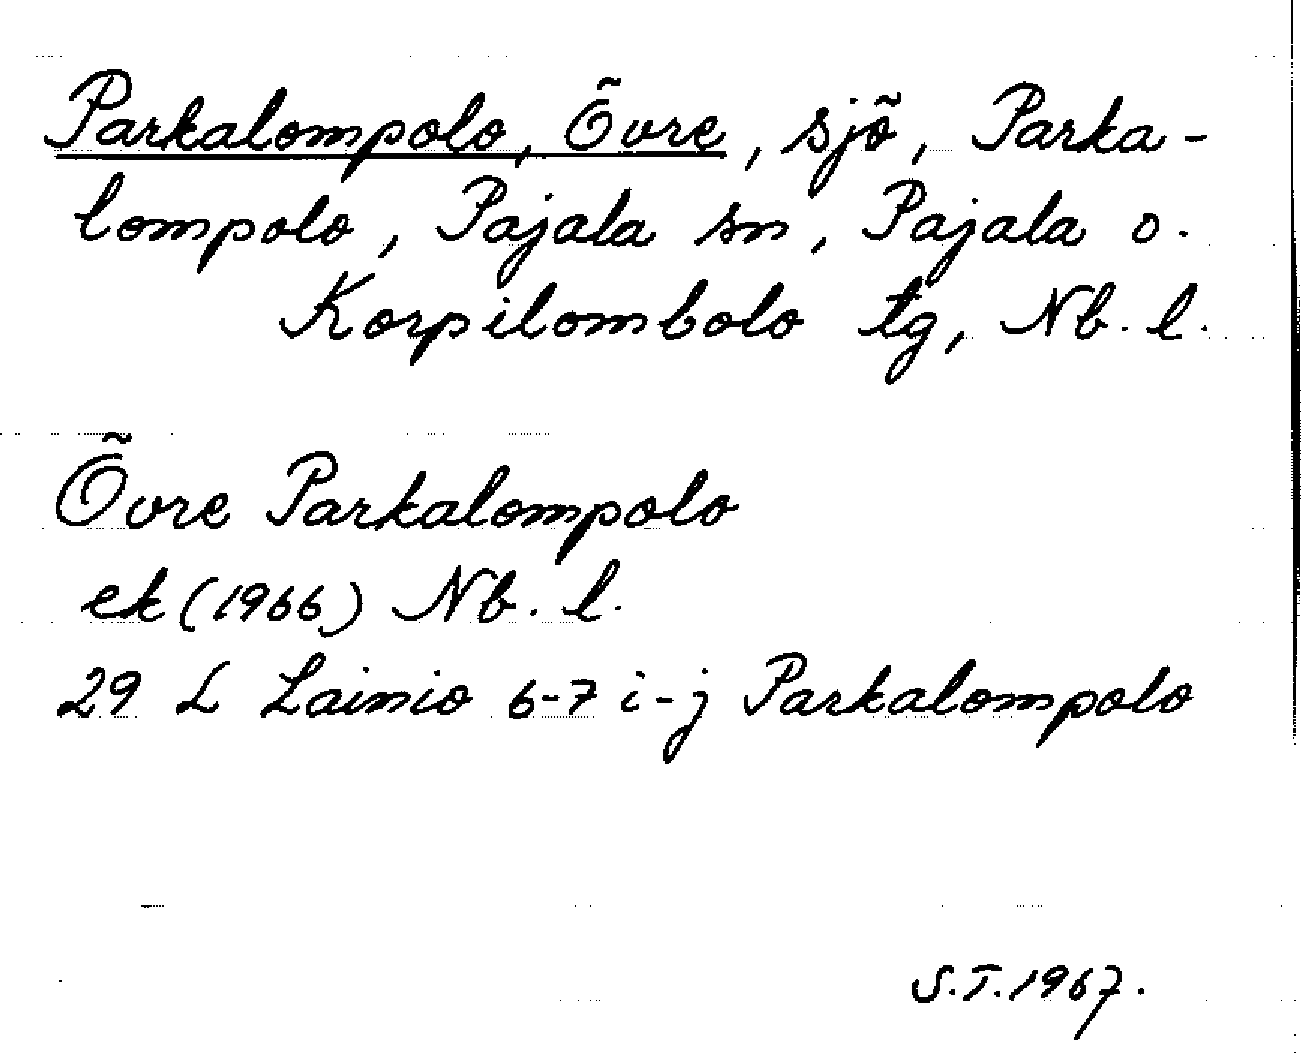 Parkalompolo, Övre, sjö, Parka-
lompolo, Pajala sn, Pajala o.
Korpilombolo tg, Nb. l.
Övre Parkalompolo
ek (1966) Nb. l.
29 L Lainio 6-7 i-j Parkalompolo
S.T. 1967.